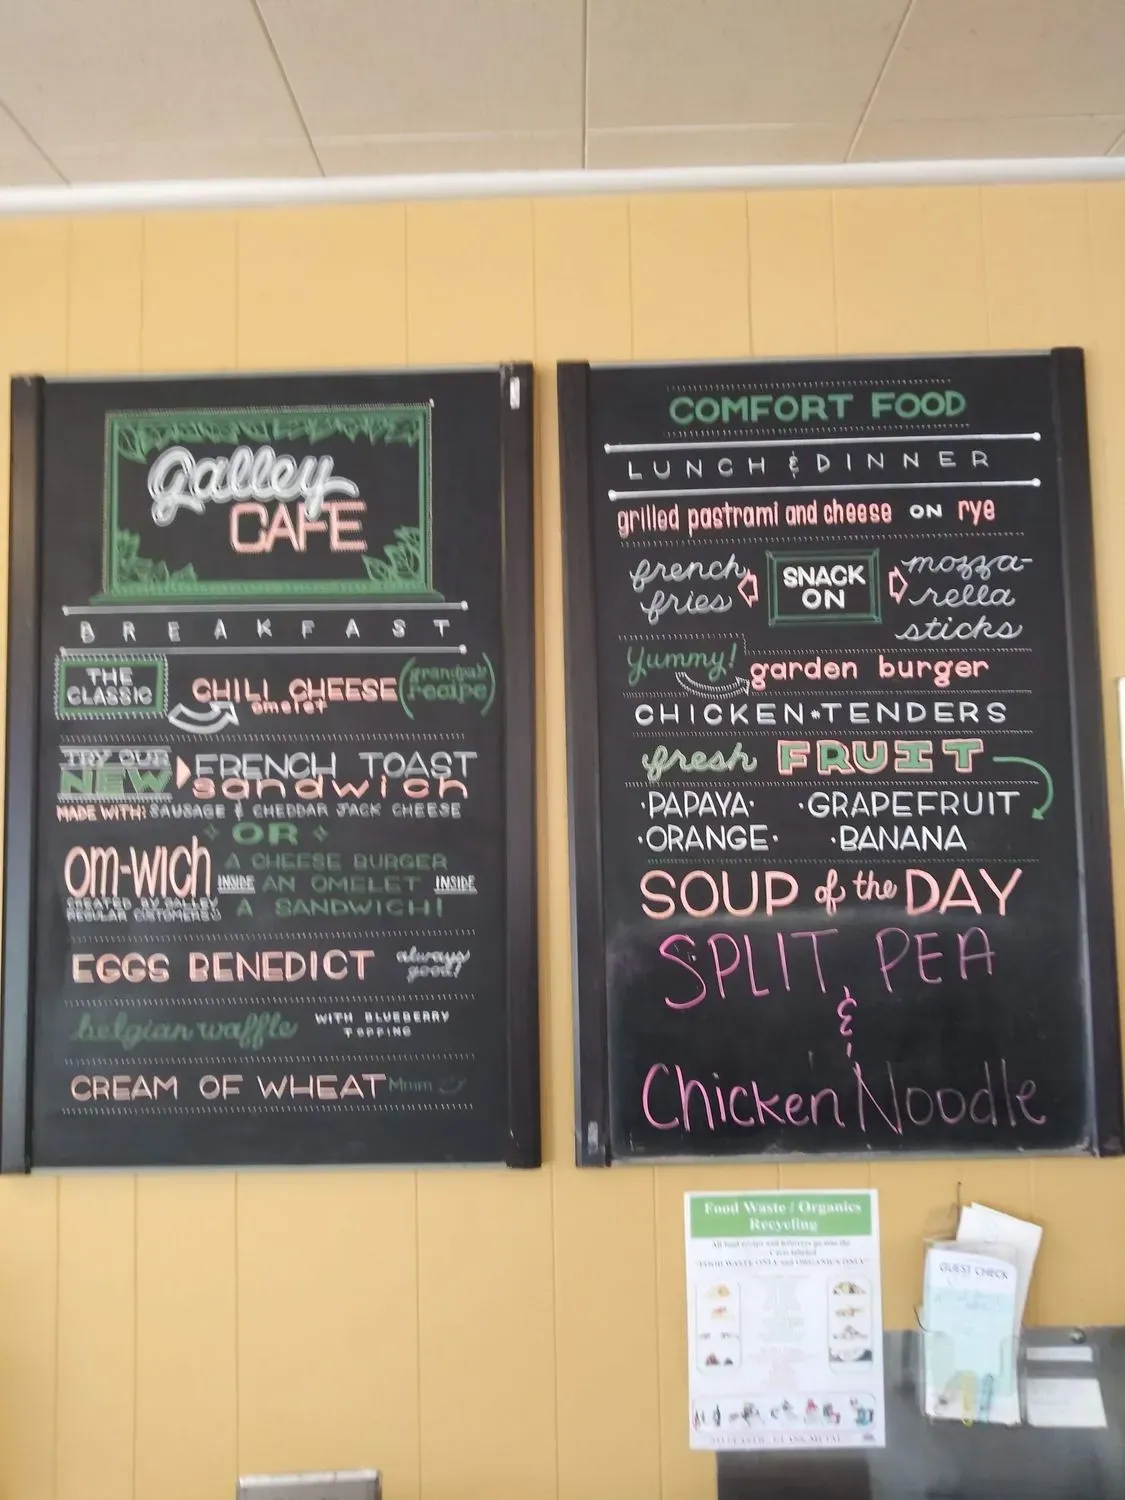 Galley
CAFE
BREAKFAST
THE
CLASSIC
CHILI CHEESE
omelet
(grandpa's
recipe)
TRY OUR
NEW
FRENCH TOAST
sandwich
MADE WITH: SAUSAGE & CHEDDAR JACK CHEESE
OR
OM-WICH
CREATED BY GALLEY
REGULAR CUSTOMERS
A CHEESE BURGER
INSIDE AN OMELET INSIDE
A SANDWICH!
EGGS BENEDICT always
good!
belgian waffle WITH BLUEBERRY
TOPPING
CREAM OF WHEAT Mmm
COMFORT FOOD
LUNCH & DINNER
grilled pastrami and cheese ON rye
french
fries
SNACK
ON
mozza-
rella
sticks
Yummy! garden burger
CHICKEN * TENDERS
fresh FRUIT
·PAPAYA· ·GRAPEFRUIT
·ORANGE· ·BANANA
SOUP of the DAY
SPLIT PEA
&
Chicken Noodle
Food Waste / Organics
Recycling
"FOOD WASTE ONLY and ORGANICS ONLY"
GUEST CHECK